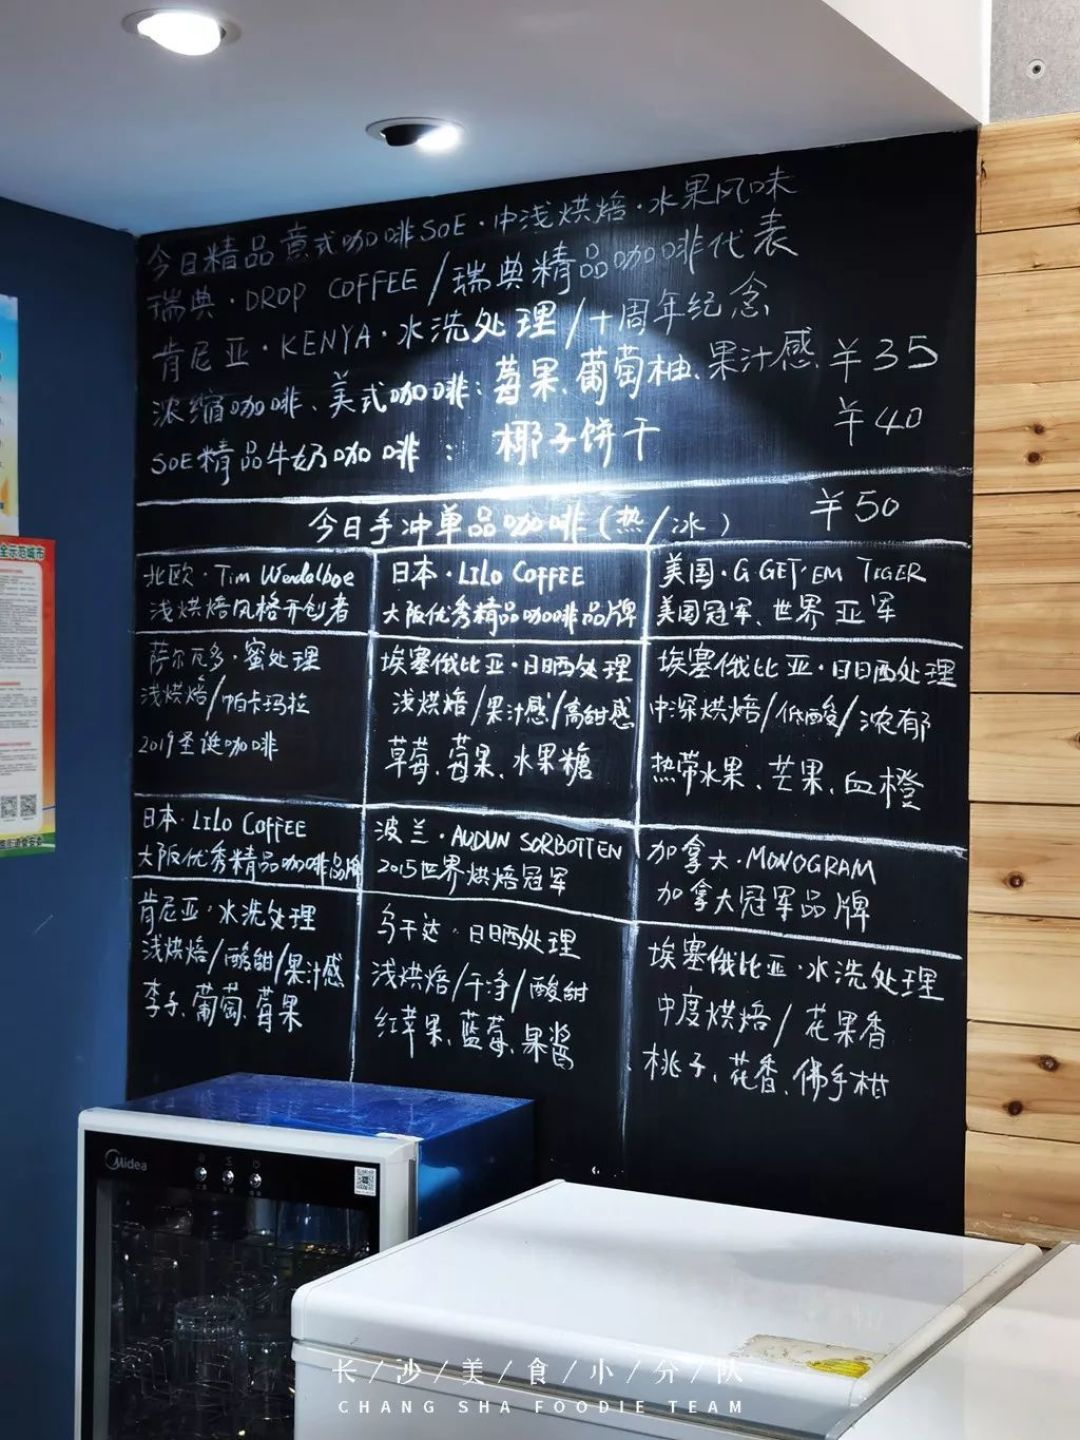 今日精品意式咖啡SOE·中浅烘焙·水果风味
瑞典·DROP COFFEE/瑞典精品咖啡代表
肯尼亚·KENYA·水洗处理/十周年纪念
浓缩咖啡、美式咖啡:莓果、葡萄柚、果汁感 ¥35
SOE精品牛奶咖啡: 椰子饼干 ¥40
今日手冲单品咖啡(热/冰) ¥50
北欧·Tim Wendelboe
浅烘焙风格开创者
萨尔瓦多·蜜处理
浅烘焙/帕卡玛拉
2019圣诞咖啡
日本·LILO COFFEE
大阪优秀精品咖啡品牌
埃塞俄比亚·日晒处理
浅烘焙/果汁感/高甜感
草莓、莓果、水果糖
美国·G GET'EM TIGER
美国冠军、世界亚军
埃塞俄比亚·日晒处理
中深烘焙/低酸/浓郁
热带水果、芒果、血橙
日本·LILO COFFEE
大阪优秀精品咖啡品牌
肯尼亚·水洗处理
浅烘焙/酸甜/果汁感
李子、葡萄、莓果
波兰·AUDUN SORBOTTEN
2015世界烘焙冠军
乌干达·日晒处理
浅烘焙/干净/酸甜
红苹果、蓝莓、果酱
加拿大·MONOGRAM
加拿大冠军品牌
埃塞俄比亚·水洗处理
中度烘焙/花果香
桃子、花香、佛手柑
全示范城市
Midea
长/沙/美/食/小/分/队
CHANG SHA FOODIE TEAM